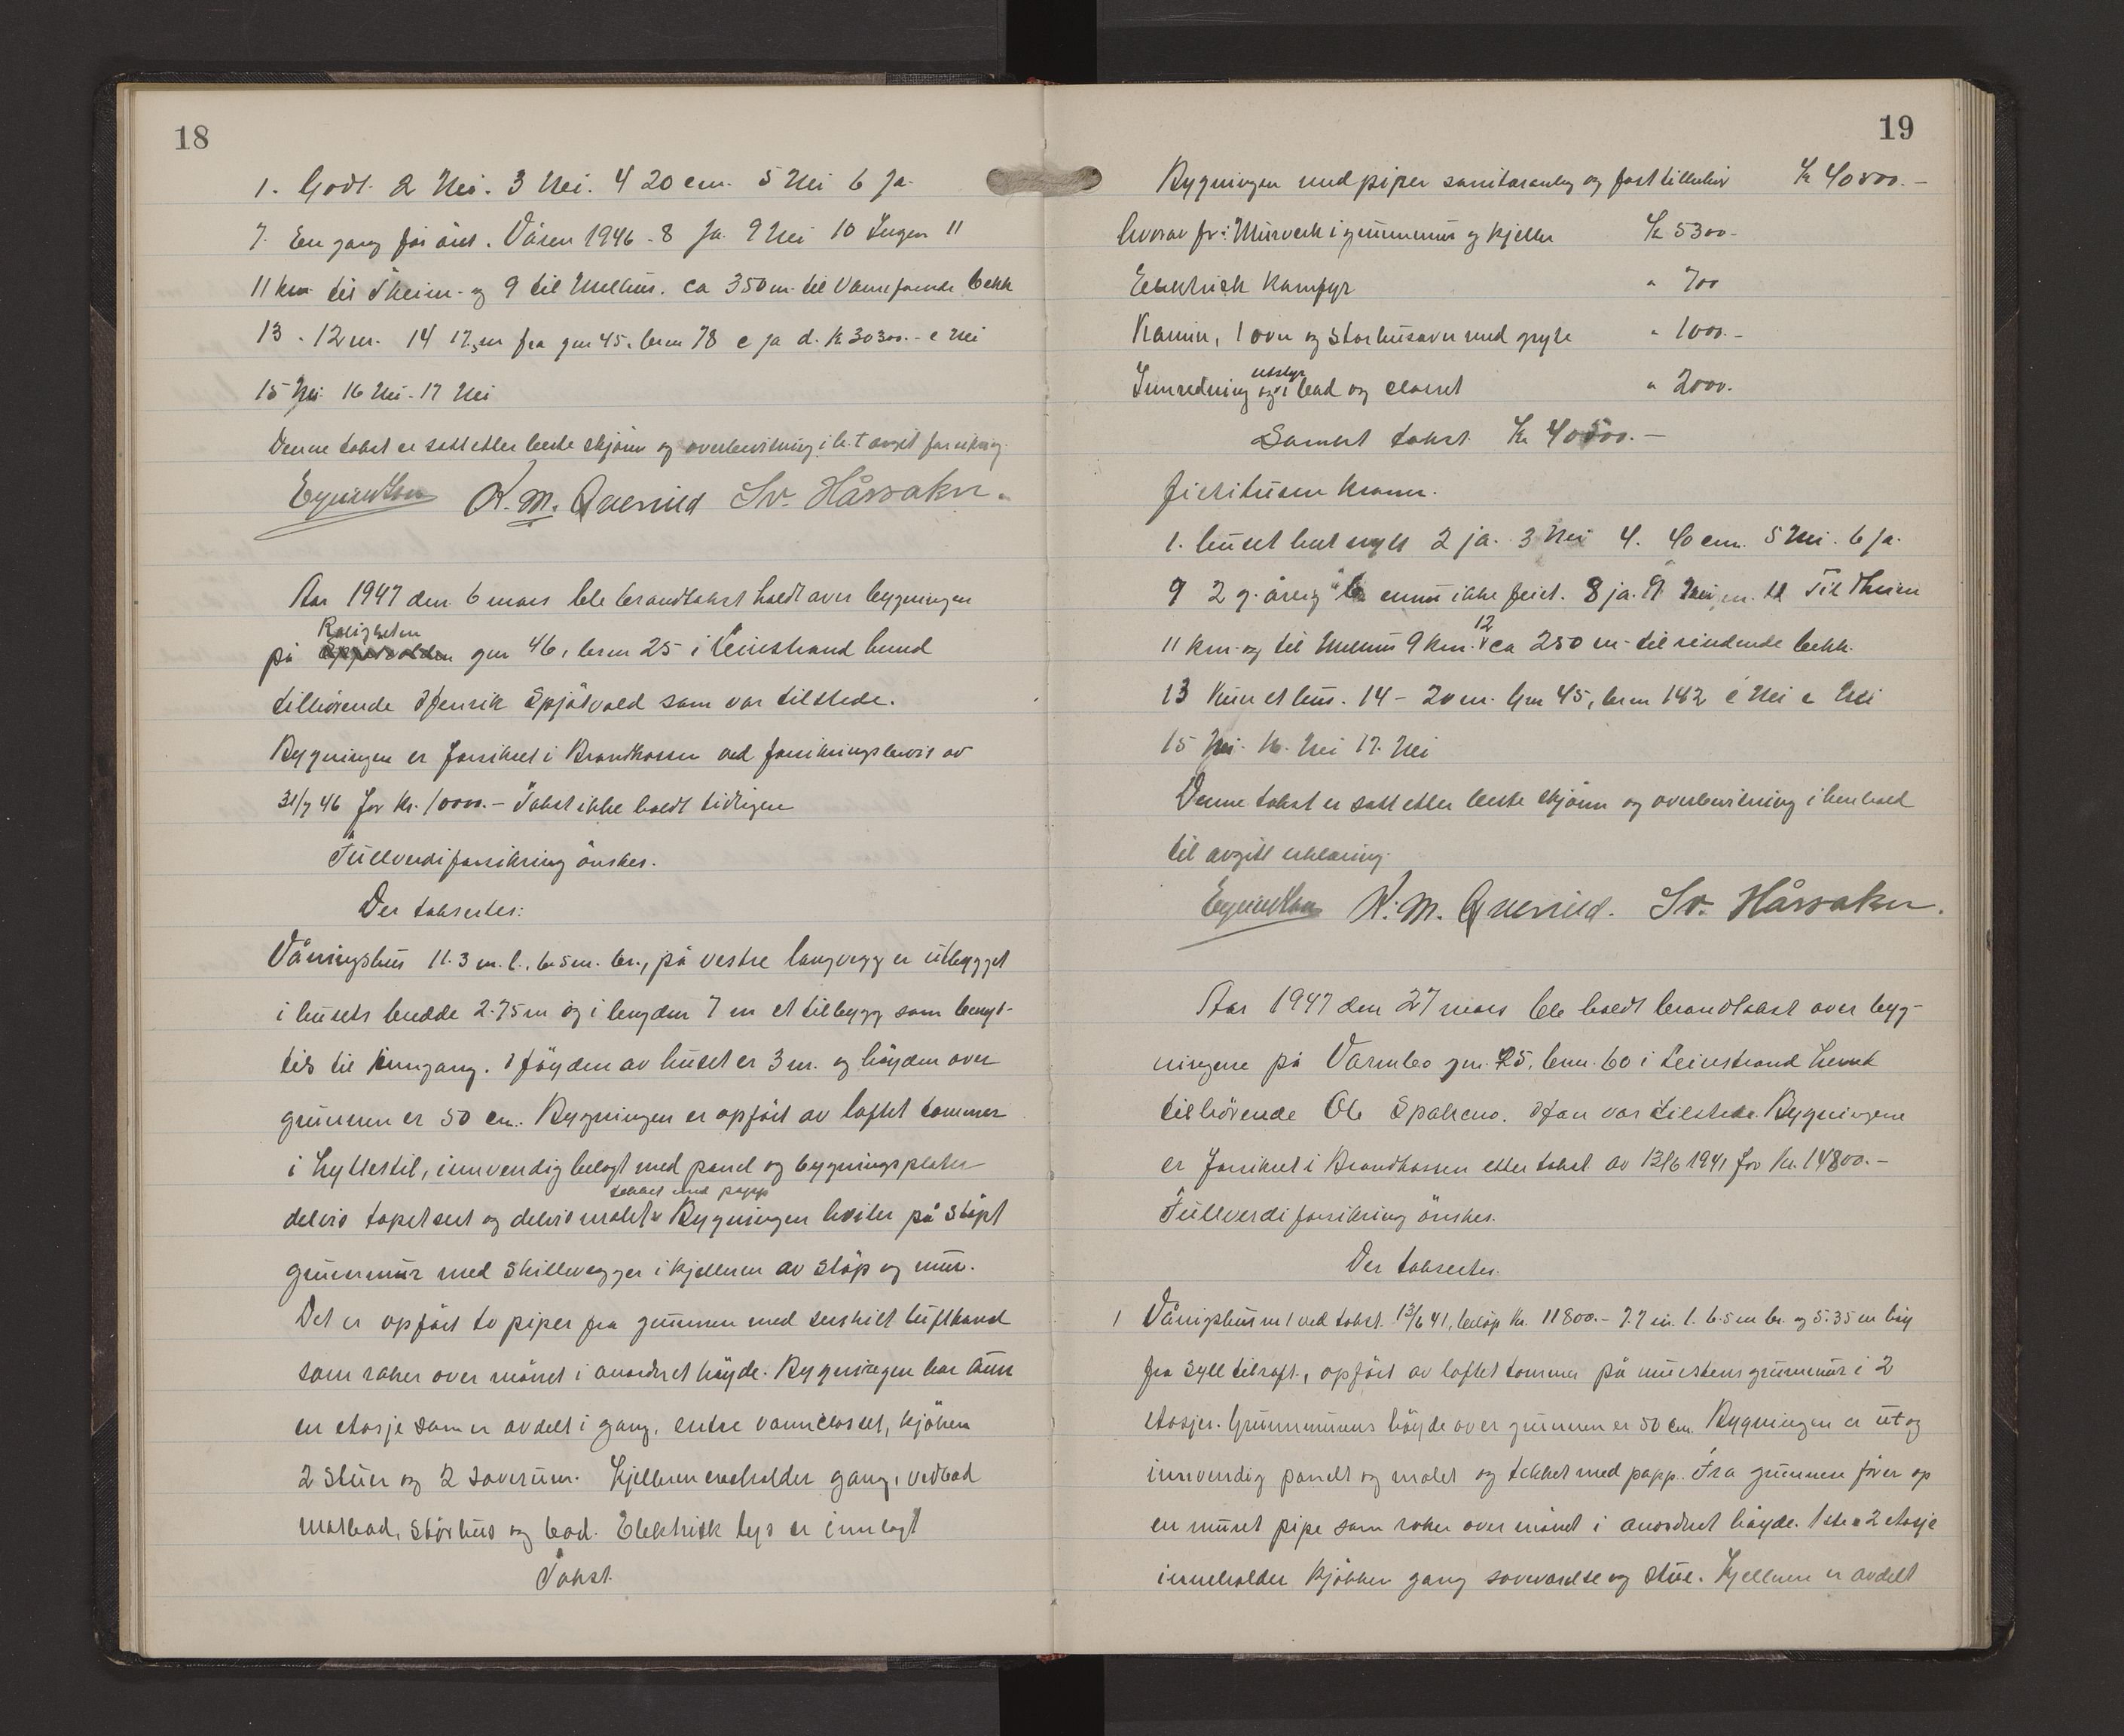 18
1. Godt. 2 Nei. 3 Nei. 4 20 cm. 5 Nei 6 Ja.
7. En gang for året. Våren 1946 - 8 Ja. 9 Nei 10 Ingen 11
11 km til Theim- og 9 til Melhus. ca 350 m. til vannførende bekk
13 - 12 m. 14 17,5 m fra gnr 45, brnr 78 c ja d. kr 30300.- e Nei
15 Nei 16 Nei - 17 Nei
Denne takst er satt etter beste skjönn og overbevisning i h. t avgit forsikring.
K. M. Qvenild Sv. Hårsaker.
Aar 1947 den 6 mars ble brandtakst holdt over bygningen
Roligheten
på gnr 46, brnr 25 i Leinstrand herred
tilhörende Henrik Spjötvold som var tilstede.
Bygningen er forsikret i Brandkassen ved forsikringsbevis av
31/7 46 for Kr. 10000.- Takst ikke holdt tidligere
Fullverdiforsikring önskes.
Der taksertes:
Våningshus 11.3 m. l., 6.5 m. br., på vestre langvegg er utbygget
i husets bredde 2.75 m og i lengden 7 m et tilbygg som benyt-
tes til inngang. Höyden av huset er 3 m. og höyden over
grunnen er 50 cm. Bygningen er opfört av laftet tömmer
i hyttestil, innvendig belagt med panel og bygningsplater
tekket med papp
delvis tapetsert og delvis malet. Bygningen hviler på stöpt
grunnmur med skillevegger i kjelleren av stöp og mur.
Det er opfört to piper fra grunnen med serskilt luftkanal
som raker over mönet i anordnet höyde. Bygningen har kun
en etasje som er avdelt i gang, entre vannclosset, kjöken
2 stuer og 2 soverum. Kjelleren inneholder gang, vedbod
matbod, störhus og bod. Elektrisk lys er innlagt
Takst.
19
Bygningen med piper sanitæranleg og fast tilbehör Kr 40500.-
hvorav for: Murverk i grunnmur og kjeller Kr 5300-
Elektrisk Komfyr " 700
Kamin, 1 ovn og storhusovn med gryte " 1000.-
utstyr
Innredning og i bad og closset " 2000.
Samlet takst. Kr 40500.-
1. huset helt nytt 2 ja. 3 Nei 4. 40 cm. 5 Nei. 6 Ja.
9 2 g. årlig ennu ikke feiet. 8 ja. 9 Nei 11 Til Theim
12
11 km og til Melhus 9 km. ca 250 m til rindende bekk.
13 Kun et hus. 14 - 20 m. Gnr 45, brnr 142 c Nei e Nei
15 Nei. 16. Nei 17. Nei
Denne takst er satt etter beste skjönn og overbevisning i henhold
til avgitt erklæring.
K. M. Qvenild. Sv. Hårsaker.
Aar 1947 den 27 mars ble holdt brandtakst over byg-
ningene på Varmbo gnr. 25, brnr. 60 i Leinstrand herred
tilhörende Ole Spalseno. Han var tilstede. Bygningene
er forsikret i Brandkassen etter takst av 13/6 1941 for Kr. 14800.-
Fullverdiforsikring önskes.
Der taksertes.
1 Våningshus nr 1 ved takst. 13/6 41, beløp Kr. 11800.- 7.7 m. l. 6.5 m br. og 5.35 m höy
fra syll til raft, opfört av laftet tömmer på murstens grunnmur i 2
etasjer. Grunnmurens höyde over grunnen er 50 cm. Bygningen er ut og
innvendig panelt og malet og tekket med papp. Fra grunnen förer op
en muret pipe som raker over mönet i anordnet höyde. 1ste 2 etasje
inneholder kjökken gang soveværelse og stue. Kjelleren er avdelt